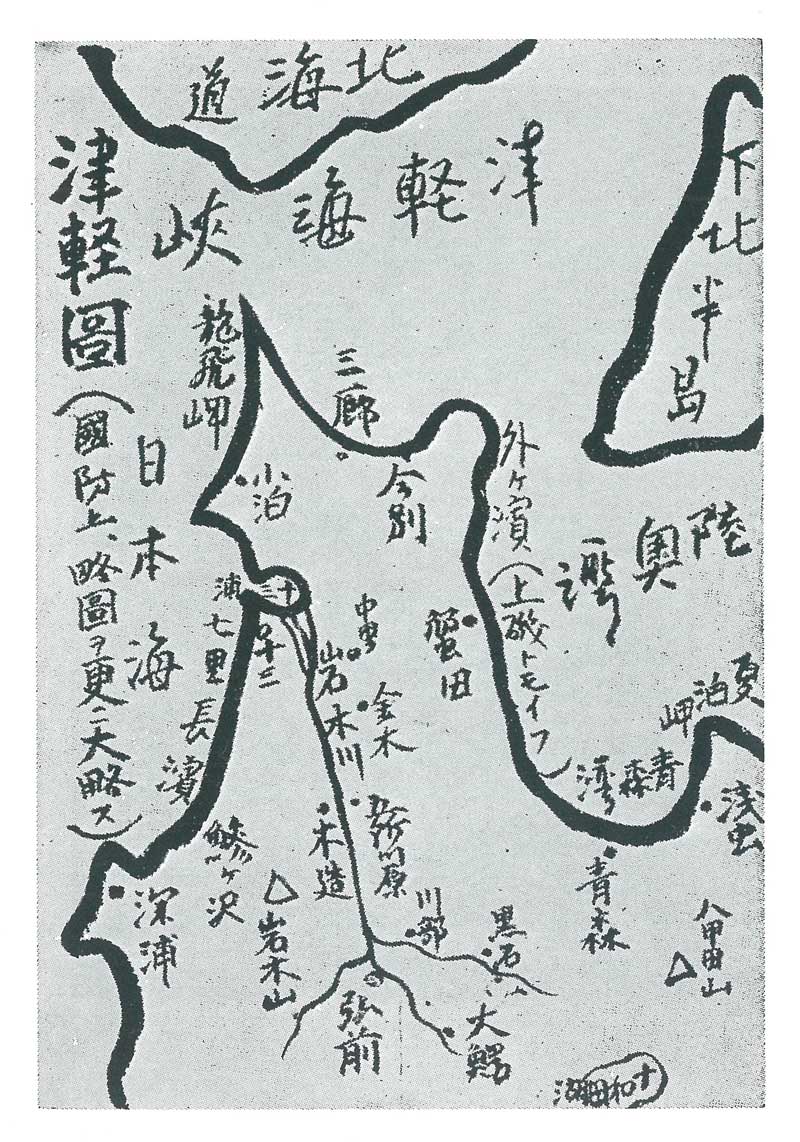 津軽圖
（國防上、略圖ヲ更ニ大略ス）
北海道
津軽海峡
下北半島
陸奥湾
日本海
龍飛岬
三厩
今別
小泊
外ヶ濱（上磯トモイフ）
十三
十三
七里長濱
中里
岩木川
金木
蟹田
夏泊岬
青森湾
浅虫
青森
五所川原
木造
鰺ヶ沢
深浦
岩木山
川部
黒石
弘前
大鰐
八甲田山
十和田湖